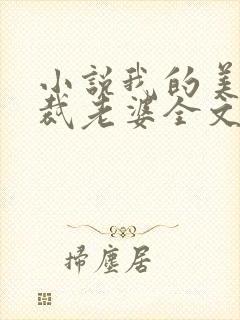 小说我的美
裁老婆全文
掃塵居